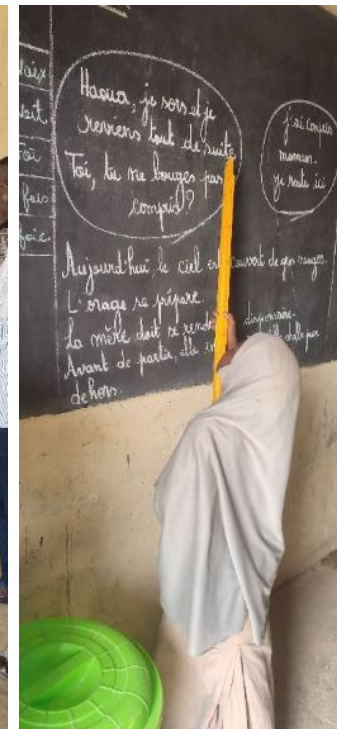 Voix
Toi
fois
foie
Haoua, je sors et je
reviens tout de suite
Toi, tu ne bouges pas
compris?
J'ai compris
maman.
je reste ici
Aujourd'hui, le ciel est couvert de gros nuages.
L'orage se prépare.
La mère doit se rendre dispensaire.
Avant de partir, elle
dehors.